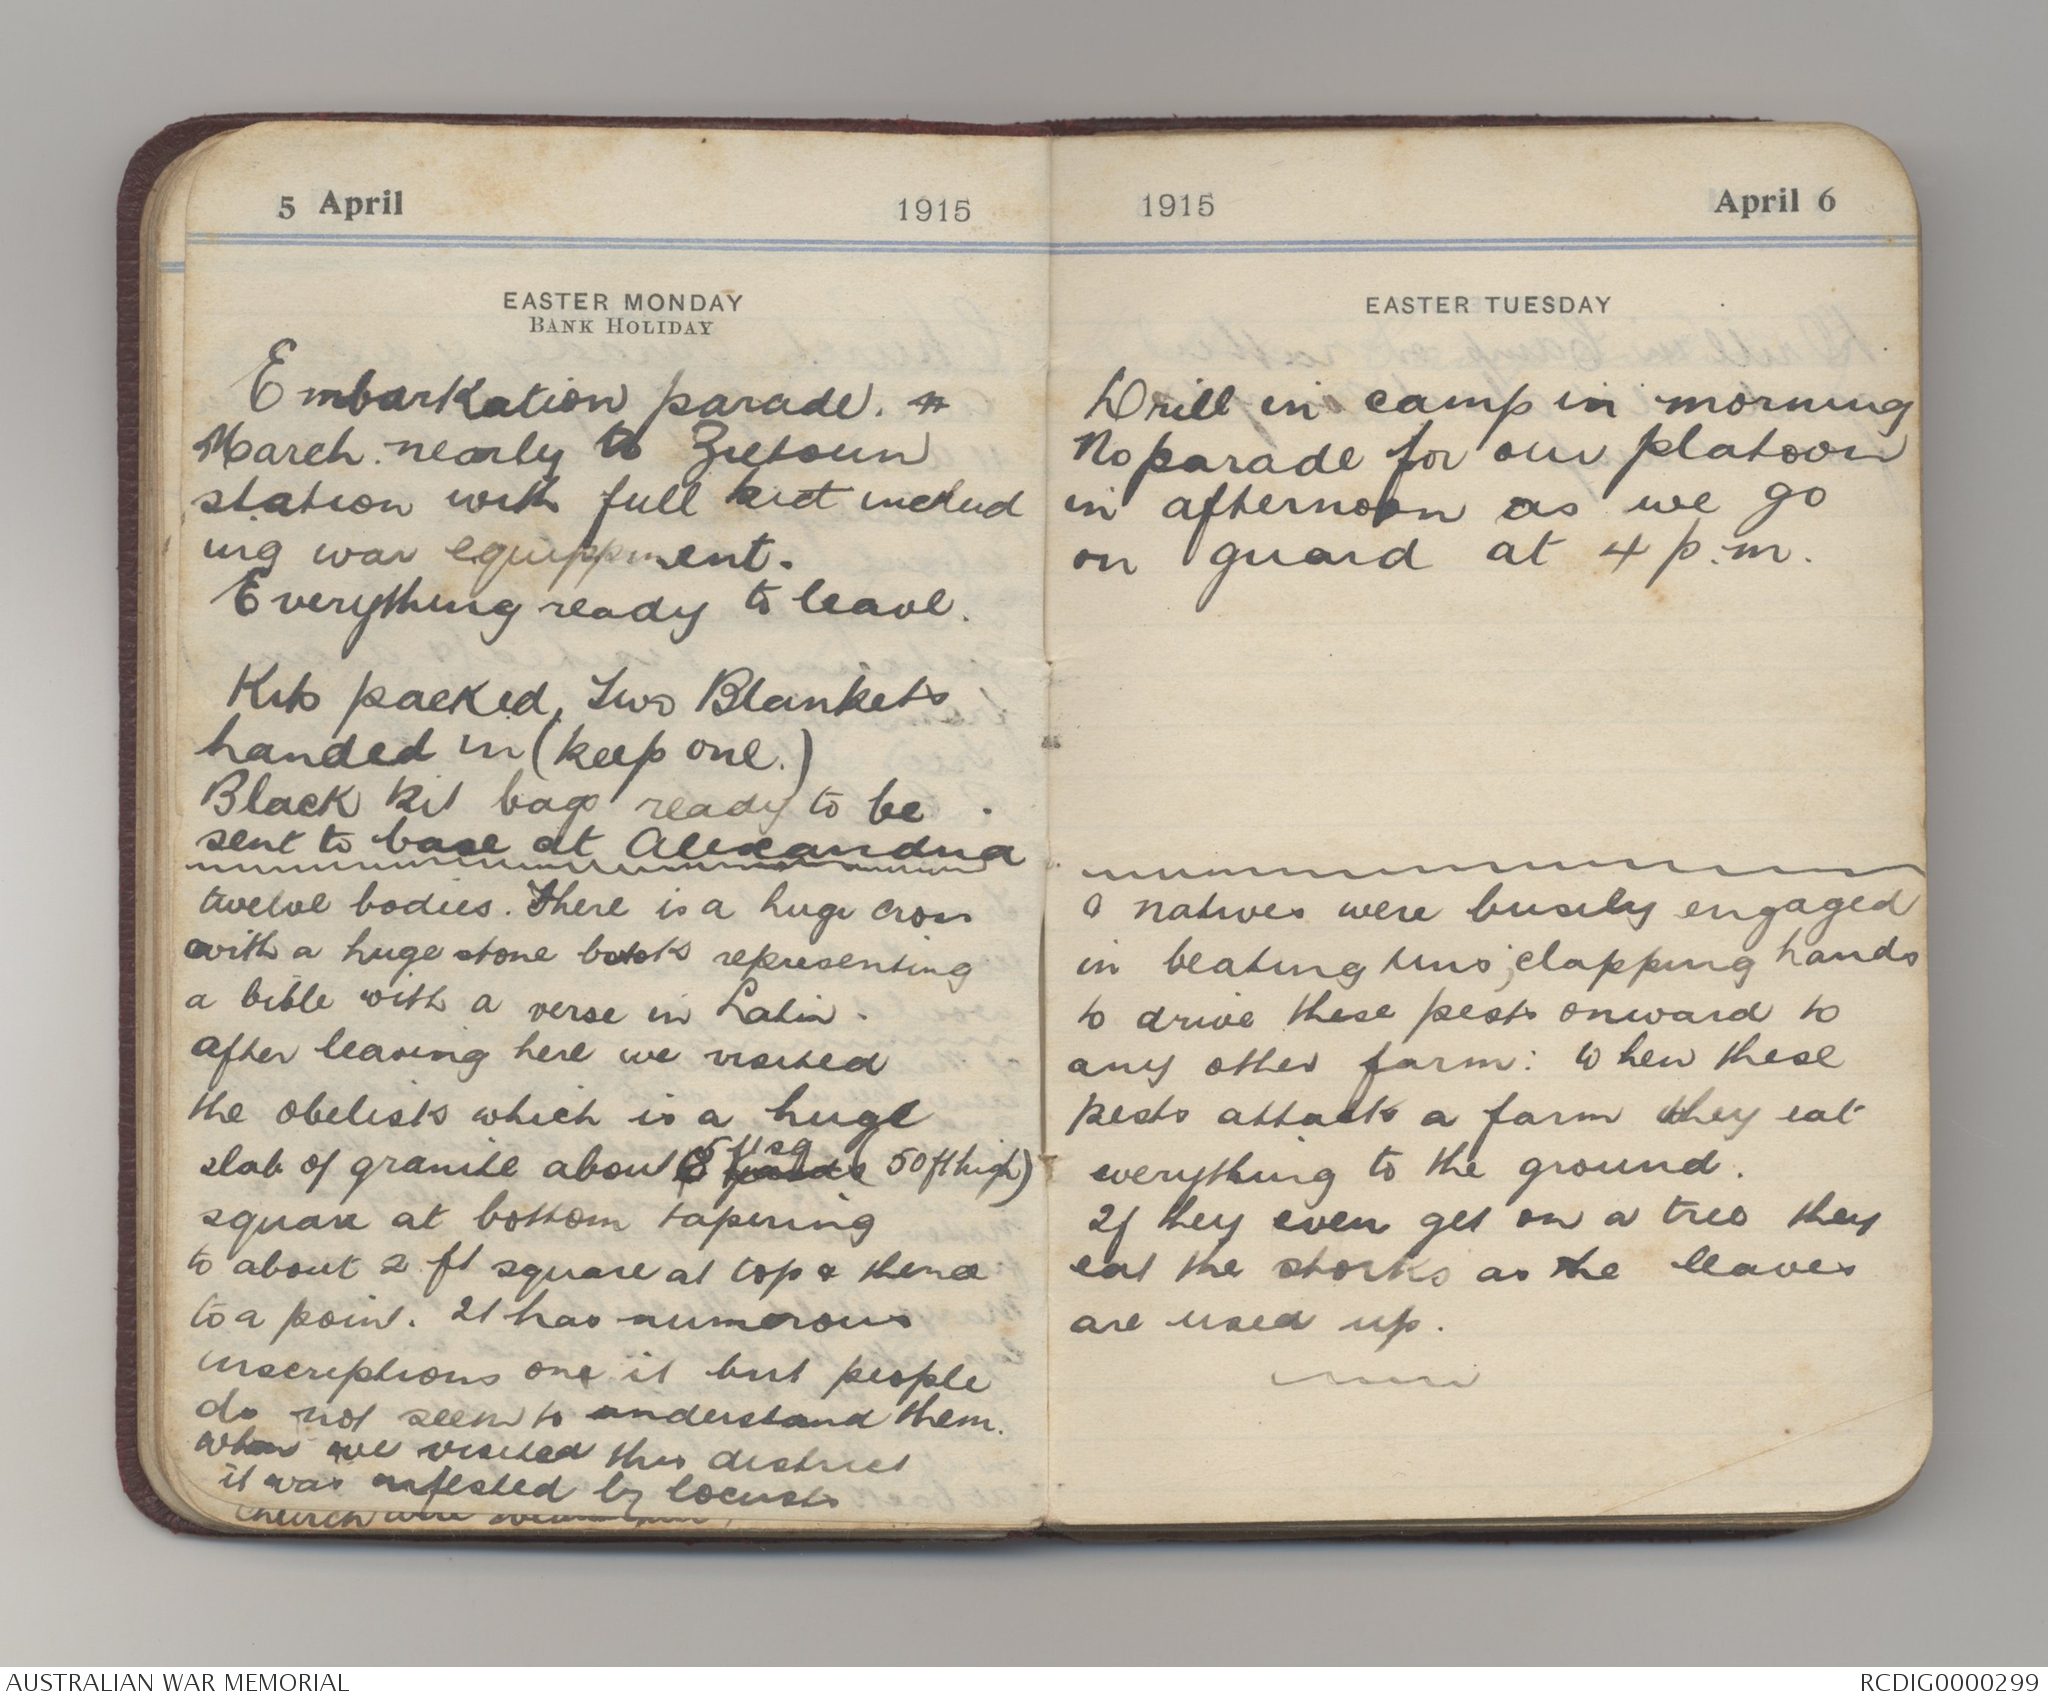 5 April 1915
EASTER MONDAY
BANK HOLIDAY
Embarkation parade.
March nearly to Zietoun
station with full kit includ
ing war equippment.
Everything ready to leave.
Kits packed, Two Blankets
handed in (keep one.)
Black kit bag ready to be
sent to base at Alexandria
twelve bodies. There is a huge cross
with a huge stone book representing
a bible with a verse in Latin.
After leaving here we visited
the obelisk which is a huge
slab of granite about 5 ft sq 50 ft high)
square at bottom tapering
to about 2 ft square at top & thence
to a point. It has numerous
inscriptions one it but people
do not seem to understand them.
When we visited this district
it was infested by locusts
church
1915 April 6
EASTER TUESDAY
Drill in camp in morning
No parade for our platoon
in afternoon as we go
on guard at 4 p.m.
& natives were busily engaged
in beating tins, clapping hands
to drive these pests onward to
any other farm: When these
pests attack a farm they eat
everything to the ground.
If they even get on a tree they
eat the storks as the leaves
are used up.
AUSTRALIAN WAR MEMORIAL
RCDIG0000299